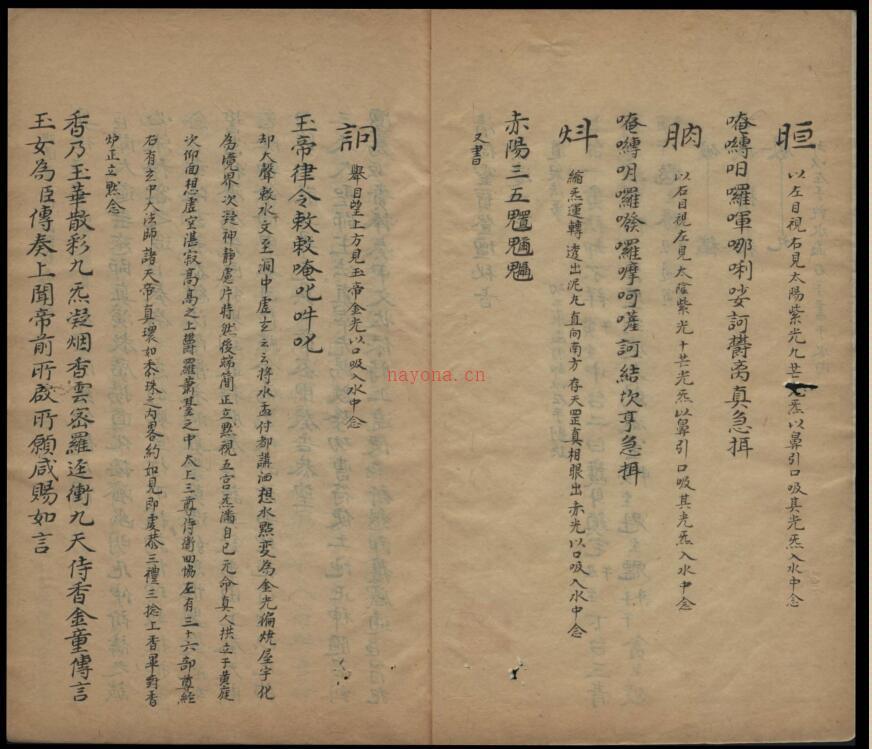 晅 以左目視右見太陽紫光九芒炁以鼻引口吸其光炁入水中念
唵嚩囉哪唎娑訶欝离真急
朒 以右目視左見太陰紫光十芒光炁以鼻引口吸其光炁入水中念
唵嚩囉癹囉摩訶結坎亨急
炓 綿炁運轉透出泥九直向南方存天罡真相眼出赤光以口吸入水中念
赤陽三五
又書
詗 舉目望上方見玉帝金光以口吸入水中念
玉帝律令敕敕唵叱吽叱
却大聲敕水文至洞中虛玄云云將水盂付都講洒想水點変為金光徧燒屋宇化
為境界次凝神静慮片時然後端簡正立黙視五宫炁滿自已元命真人拱立于黄庭
次仰面想虛空湛寂高高之上欝羅蕭臺之中太上三尊侍衛四恊左有三十六部尊經
右有玄中大法師諸天帝真環如黍珠之内畧約如見即虔恭三禮三捻上香畢對香
炉正立黙念
香乃玉華散彩九炁凝烟香雲密羅迳衝九天侍香金童傳言
玉女為臣傳奏上聞帝前所啟所願咸賜如言
nayona.cn